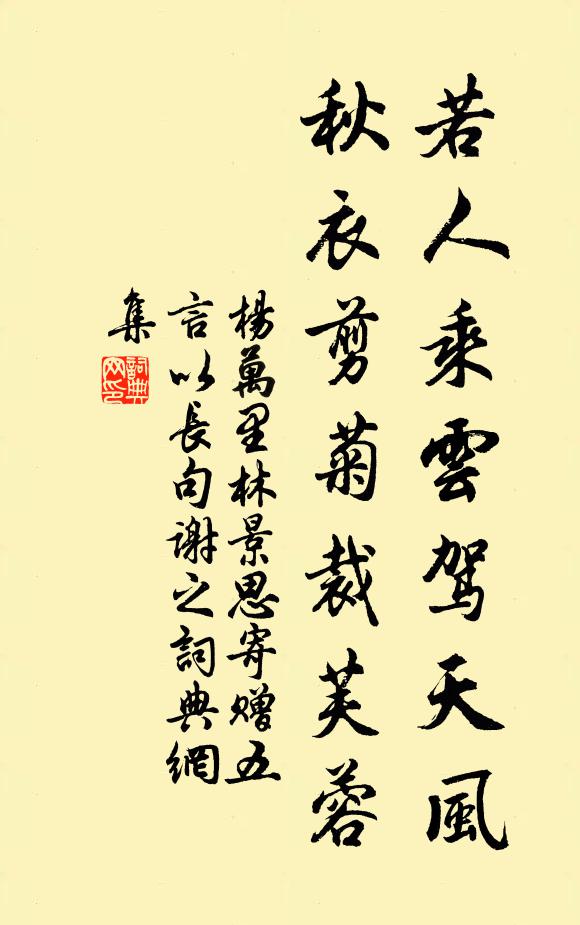 若人乘雲駕天風
秋衣剪菊裁芙蓉
楊萬里林景思寄贈五
言以長句謝之詞典網
集
詞典
网印